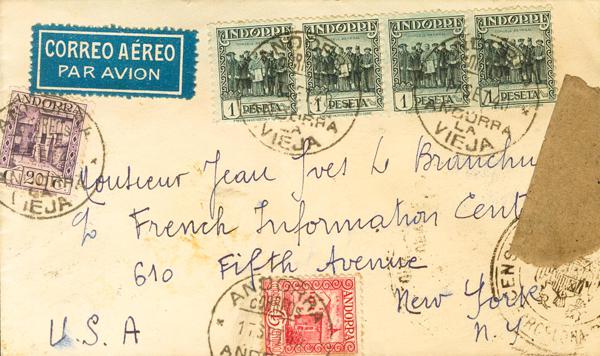 CORREO AÉREO
PAR AVION
ANDORRA ANDORRA ANDORRA ANDORRA
1 PESETA 1 PESETA 1 PESETA 1 PESETA
ANDORRA
LA
VIEJA
ANDORRA
LA
VIEJA
ANDORRA
20
VIEJA
Monsieur Jean Yves Le Branchu
c/o French Information Cent
610 Fifth Avenue
New York
U.S.A N.Y
ANDORRA
CORREOS
ANDORRA